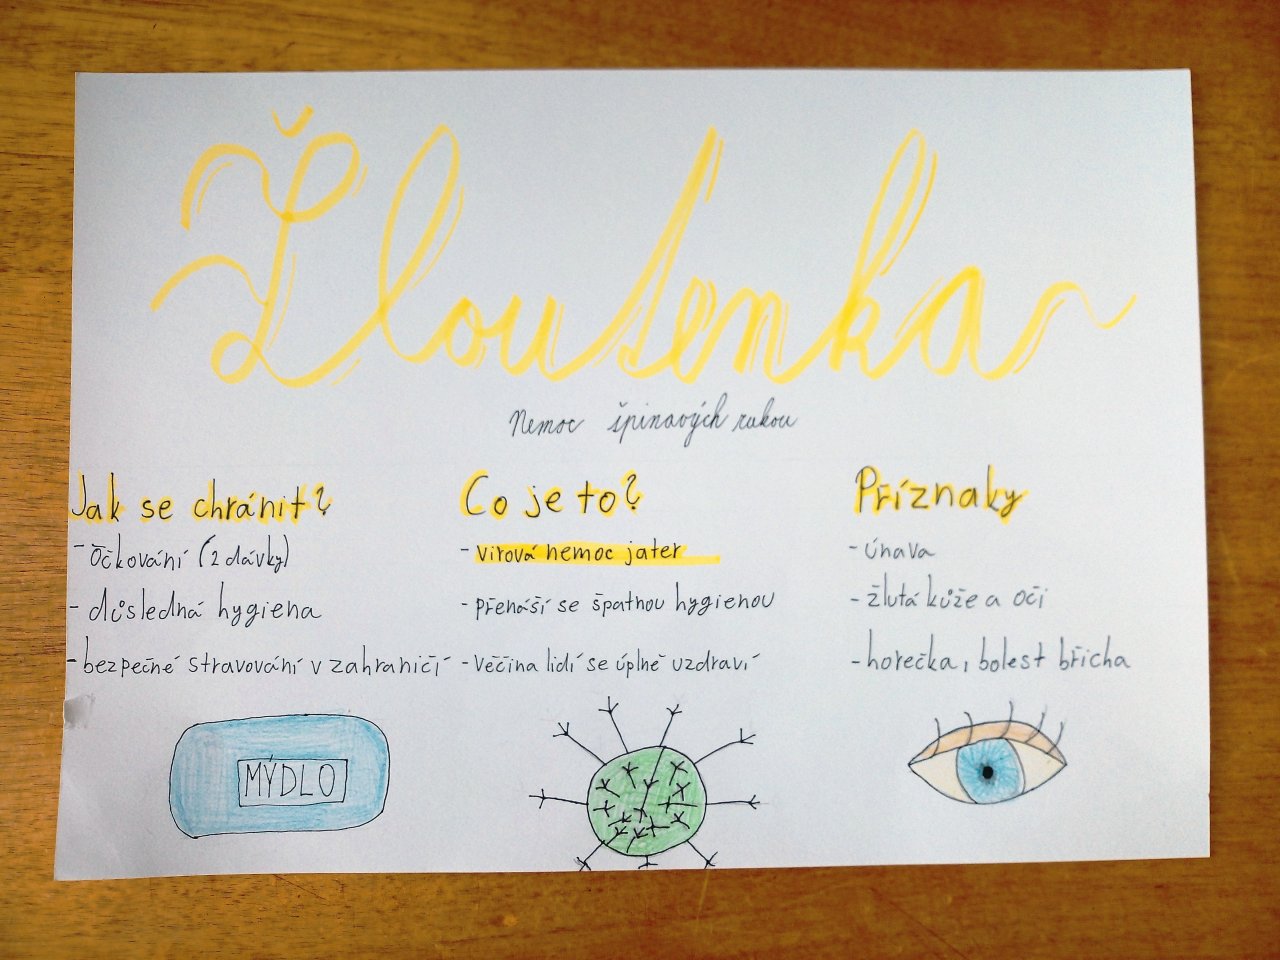 Žloutenka
Nemoc špinavých rukou
Jak se chránit?
- Očkování (2 dávky)
- důsledná hygiena
- bezpečné stravování v zahraničí
MÝDLO
Co je to?
- virová nemoc jater
- přenáší se špatnou hygienou
- Věčina lidí se úplně uzdraví
Příznaky
- únava
- žlutá kůže a oči
- horečka, bolest břicha